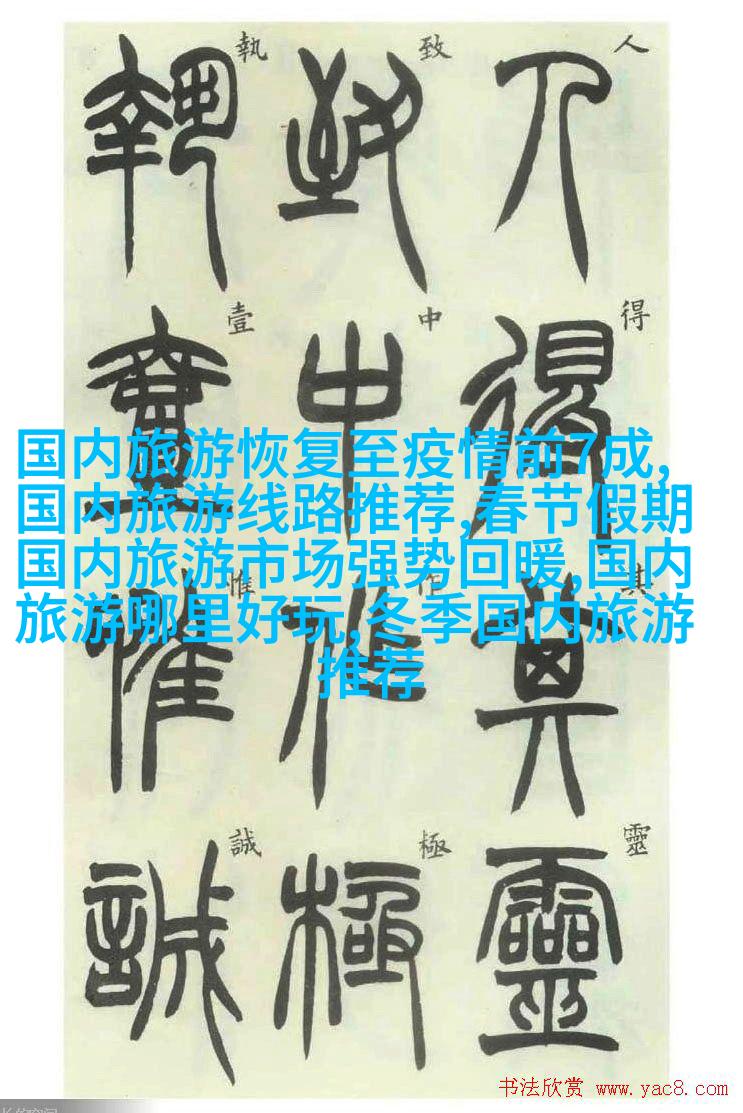 人得其靈
致中作極
執壹惟誠
人
得
其
靈
致
中
作
極
執
壹
惟
誠
国内旅游恢复至疫情前7成,
国内旅游线路推荐,春节假期
国内旅游市场强势回暖,国内
旅游哪里好玩,冬季国内旅游
推荐
书法欣赏 www.yac8.com